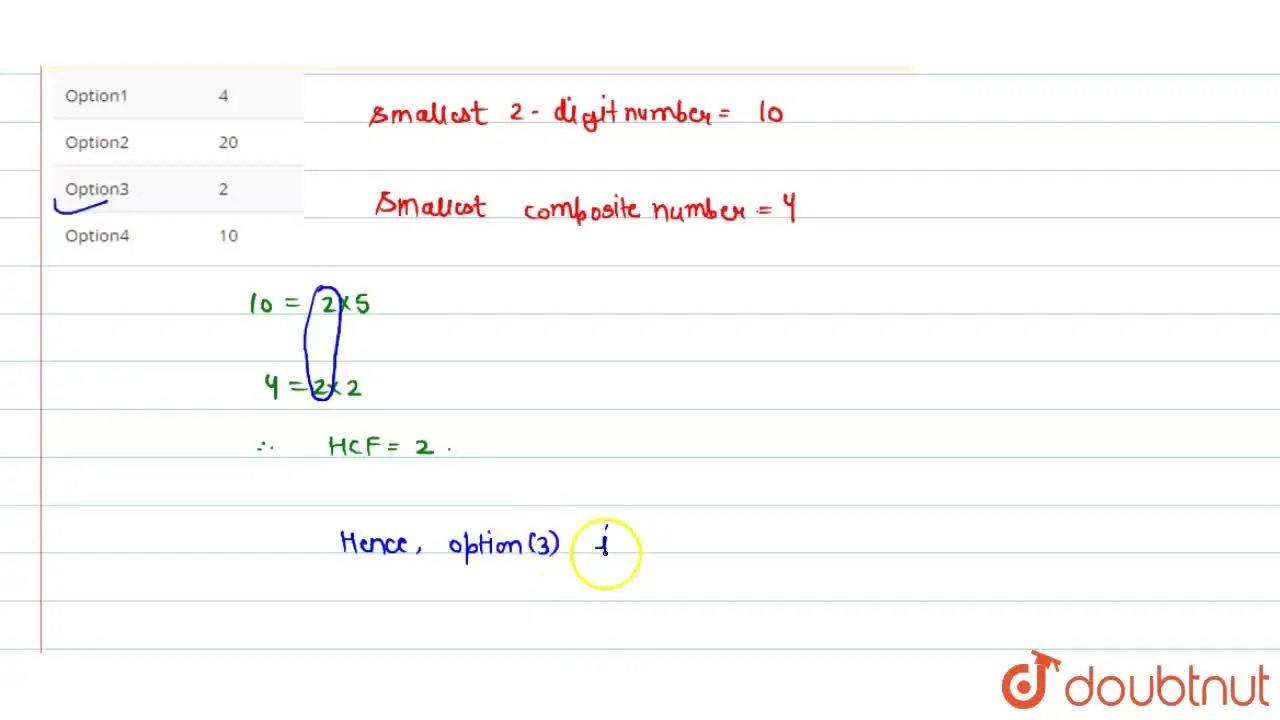 Option1 4
Smallest 2 - digit number = 10
Option2 20
Option3 2
Smallest composite number = 4
Option4 10
10 = 2 × 5
4 = 2 × 2
∴ HCF = 2 .
Hence, option (3) i
doubtnut